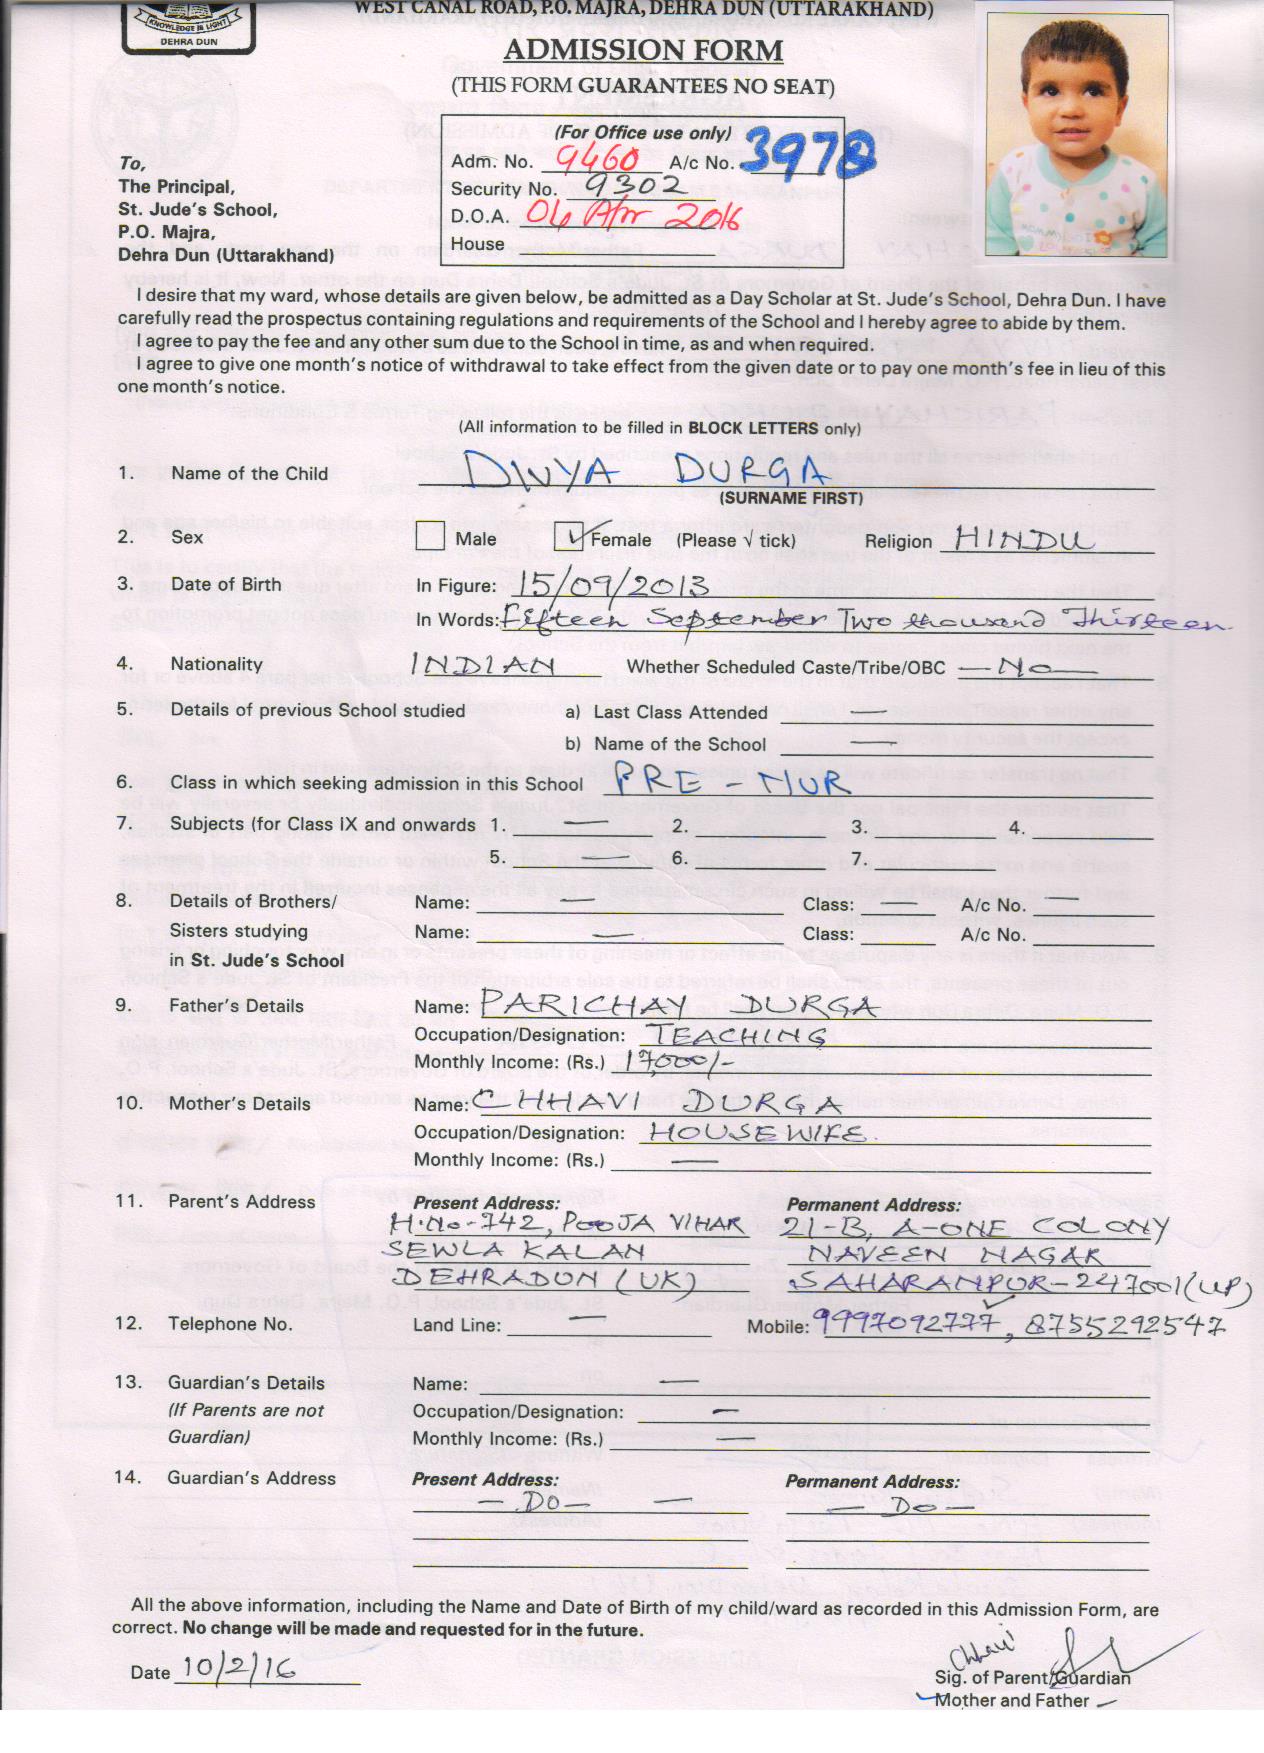 KNOWLEDGE IS LIGHT
DEHRA DUN
WEST CANAL ROAD, P.O. MAJRA, DEHRA DUN (UTTARAKHAND)
ADMISSION FORM
(THIS FORM GUARANTEES NO SEAT)
(For Office use only)
Adm. No. 9460 A/c No. 3978
Security No. 9302
D.O.A. 04 Apr 2016
House
To,
The Principal,
St. Jude's School,
P.O. Majra,
Dehra Dun (Uttarakhand)
I desire that my ward, whose details are given below, be admitted as a Day Scholar at St. Jude's School, Dehra Dun. I have
carefully read the prospectus containing regulations and requirements of the School and I hereby agree to abide by them.
I agree to pay the fee and any other sum due to the School in time, as and when required.
I agree to give one month's notice of withdrawal to take effect from the given date or to pay one month's fee in lieu of this
one month's notice.
(All information to be filled in BLOCK LETTERS only)
1. Name of the Child DIVYA DURGA
(SURNAME FIRST)
2. Sex Male Female (Please √ tick) Religion HINDU
3. Date of Birth In Figure: 15/09/2013
In Words: Fifteen September Two thousand Thirteen
4. Nationality INDIAN Whether Scheduled Caste/Tribe/OBC — No —
5. Details of previous School studied a) Last Class Attended —
b) Name of the School —
6. Class in which seeking admission in this School PRE - NUR
7. Subjects (for Class IX and onwards 1. — 2. 3. 4.
5. — 6. 7.
8. Details of Brothers/ Name: — Class: — A/c No. —
Sisters studying Name: — Class: A/c No.
in St. Jude's School
9. Father's Details Name: PARICHAY DURGA
Occupation/Designation: TEACHING
Monthly Income: (Rs.) 17,000/-
10. Mother's Details Name: CHHAVI DURGA
Occupation/Designation: HOUSEWIFE.
Monthly Income: (Rs.) —
11. Parent's Address Present Address: Permanent Address:
H.No-742, POOJA VIHAR 21-B, A-ONE COLONY
SEWLA KALAN NAVEEN NAGAR
DEHRADUN (UK) SAHARANPUR-247001(UP)
12. Telephone No. Land Line: — Mobile: 9997092777, 8755292547
13. Guardian's Details Name: —
(If Parents are not Occupation/Designation: —
Guardian) Monthly Income: (Rs.) —
14. Guardian's Address Present Address: Permanent Address:
— DO — — — DO —
All the above information, including the Name and Date of Birth of my child/ward as recorded in this Admission Form, are
correct. No change will be made and requested for in the future.
Date 10/2/16 Chhavi
Sig. of Parent/Guardian
Mother and Father